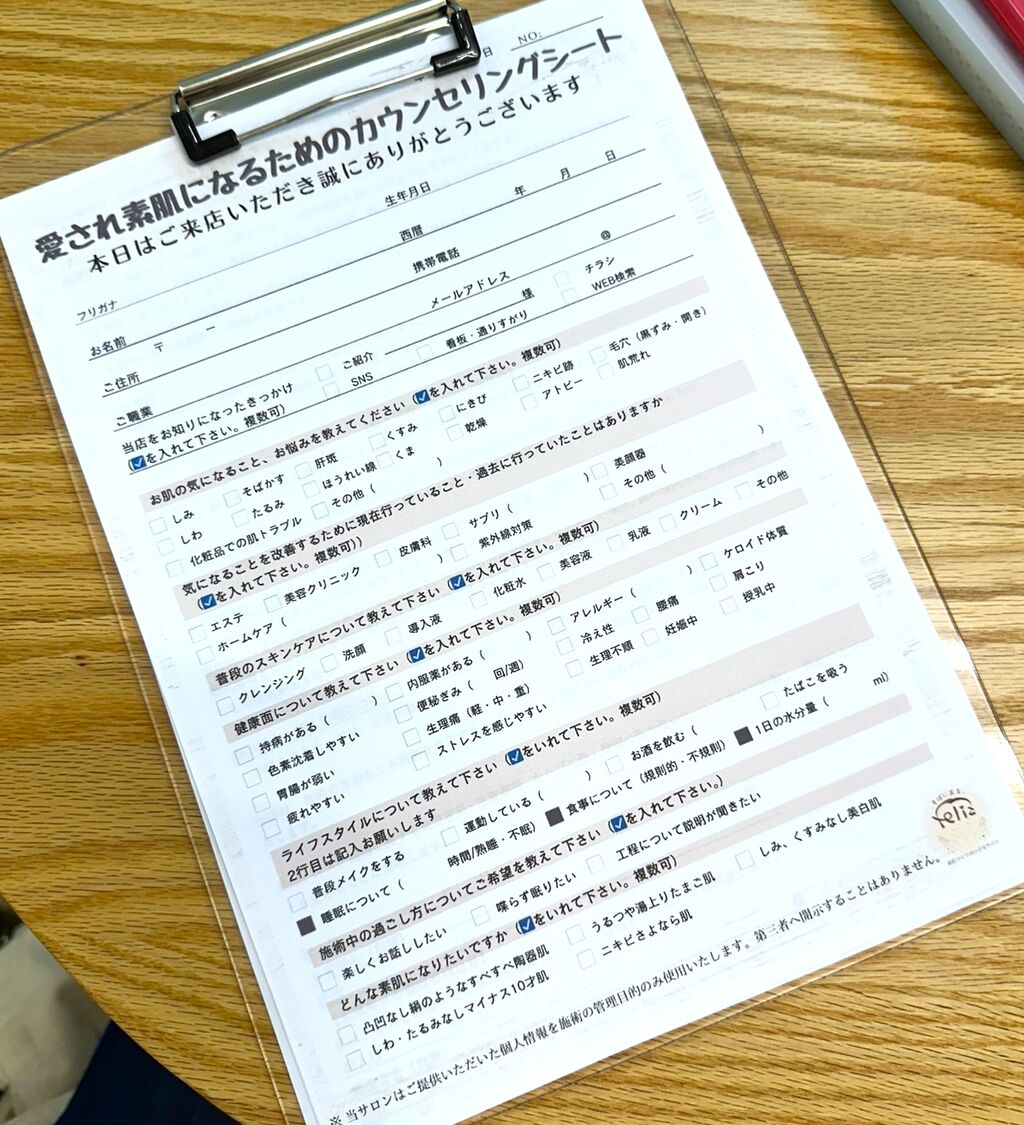 日 NO:
愛され素肌になるためのカウンセリングシート
本日はご来店いただき誠にありがとうございます
フリガナ 生年月日
お名前 西暦 年 月 日
ご住所 〒 － 携帯電話
ご職業 メールアドレス @
当店をお知りになったきっかけ □ ご紹介 様 □ チラシ
(☑を入れて下さい。複数可) □ SNS □ 看板・通りすがり □ WEB検索
お肌の気になること、お悩みを教えてください (☑を入れて下さい。複数可)
□ しみ □ そばかす □ 肝斑 □ くすみ □ にきび □ ニキビ跡 □ 毛穴（黒ずみ・開き）
□ しわ □ たるみ □ ほうれい線 □ くま □ 乾燥 □ アトピー □ 肌荒れ
□ 化粧品での肌トラブル □ その他（ ）
気になることを改善するために現在行っていること・過去に行っていたことはありますか
(☑を入れて下さい。複数可))
□ エステ □ 美容クリニック □ 皮膚科 □ サプリ（ ） □ 美顔器
□ ホームケア（ ） □ 紫外線対策 □ その他（ ）
普段のスキンケアについて教えて下さい (☑を入れて下さい。複数可)
□ クレンジング □ 洗顔 □ 導入液 □ 化粧水 □ 美容液 □ 乳液 □ クリーム □ その他
健康面について教えて下さい (☑を入れて下さい。複数可)
□ 持病がある（ ） □ 内服薬がある（ ） □ アレルギー（ ） □ ケロイド体質
□ 色素沈着しやすい □ 便秘ぎみ（ 回/週） □ 冷え性 □ 腰痛 □ 肩こり
□ 胃腸が弱い □ 生理痛（軽・中・重） □ 生理不順 □ 妊娠中 □ 授乳中
□ 疲れやすい □ ストレスを感じやすい
ライフスタイルについて教えて下さい (☑をいれて下さい。複数可)
2行目は記入お願いします
□ 普段メイクをする □ 運動している（ ） □ お酒を飲む（ □ たばこを吸う
■ 睡眠について（ 時間/熟睡・不眠） ■ 食事について（規則的・不規則） ■ 1日の水分量（ ml）
施術中の過ごし方についてご希望を教えて下さい (☑を入れて下さい。)
□ 楽しくお話ししたい □ 喋らず眠りたい □ 工程について説明が聞きたい
どんな素肌になりたいですか (☑をいれて下さい。複数可)
□ 凸凹なし絹のようなすべすべ陶器肌 □ うるつや湯上りたまご肌 □ しみ、くすみなし美白肌
□ しわ・たるみなしマイナス10才肌 □ ニキビさよなら肌
※ 当サロンはご提供いただいた個人情報を施術の管理目的のみ使用いたします。第三者へ開示することはありません。